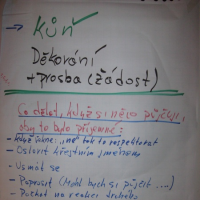 → Kůň
Děkování
+ prosba (žádost)
Co dělat, když si něco půjčuji,
aby to bylo příjemné:
- když řekne „ne" tak to respektovat
- Oslovit křestním jménem
- Usmát se
- Poprosit (Mohl bych si půjčit ...)
- Počkat na reakci druhého